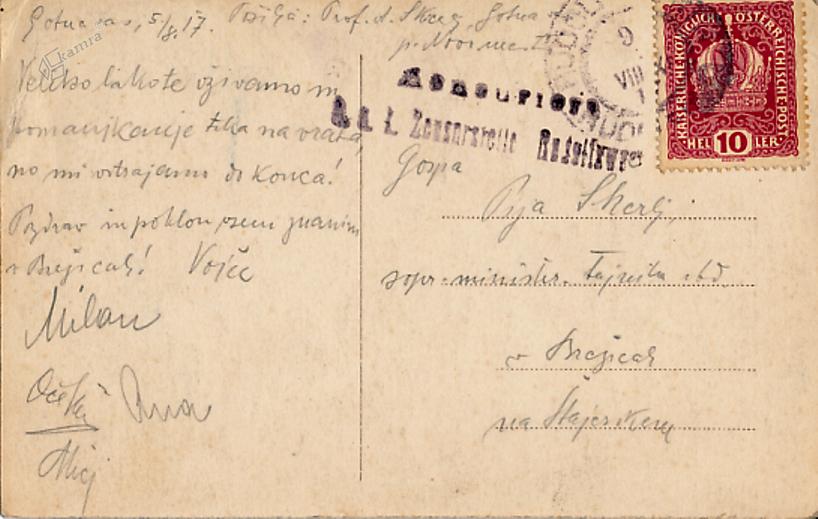 Gotna vas, 5/8. 17. Pošilja: Prof. d. Skerlj, Gotna vas
p. Novo mesto
kamra
Veliko lakote uživamo in
pomanjkanje trka na vrata
no mi vstrajamo do konca!
Pozdrav in poklon vsem znanim
v Brežicah! Vojče
Milan
Oček Ana
Zensuriert
K. u. k. Zensurstelle Rudolfswert
KAISERLICHE KÖNIGLICHE ÖSTERREICHISCHE POST
HELLER
10
VIII
Gospa
Pija Skerlj,
sopr. minister. tajnika itd.
v Brežicah
na Štajerskem